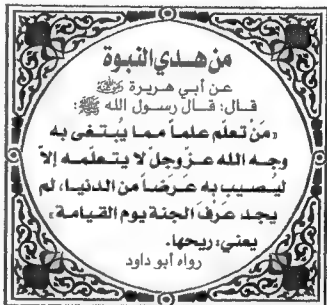 من هدي النبوة
عن أبي هريرة رضي الله عنه
قال: قال رسول الله ﷺ:
«مَنْ تعلَّم علماً مما يُبتغى به
وجه الله عزَّ وجلَّ لا يتعلَّمه إلاَّ
ليُصيب به عَرَضاً من الدنيا، لم
يجد عَرْفَ الجنة يوم القيامة»
يعني: ريحها.
رواه أبو داود